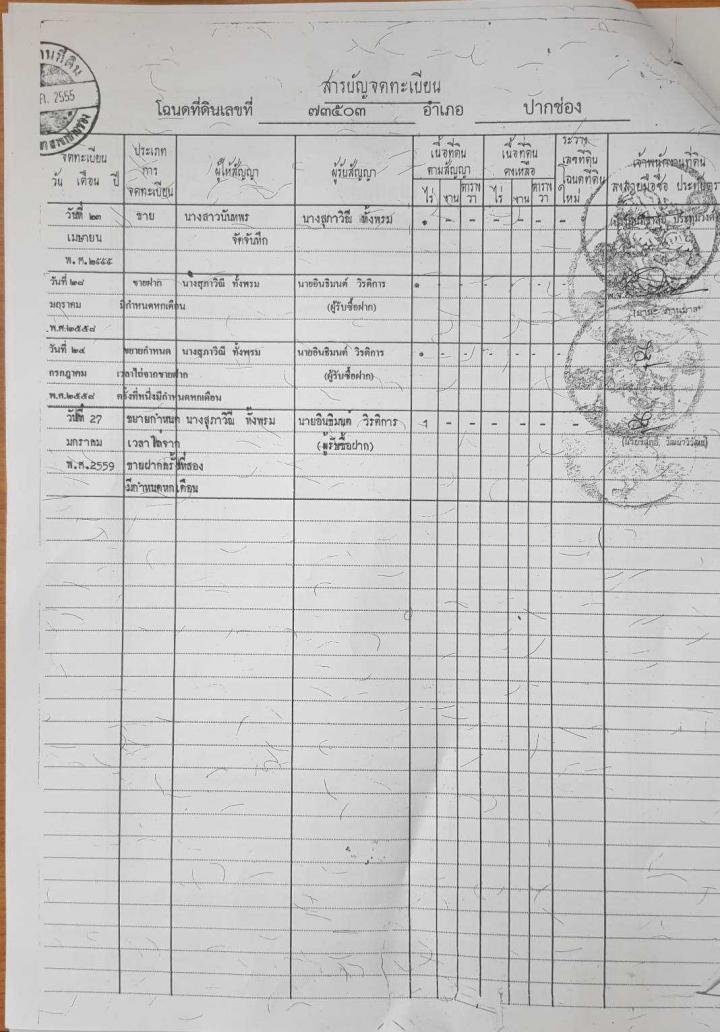 2555
สารบัญจดทะเบียน
โฉนดที่ดินเลขที่ ๗๓๕๐๓ อำเภอ ปากช่อง
จดทะเบียน
วัน เดือน ปี
ประเภท
การ
จดทะเบียน
ผู้ให้สัญญา
ผู้รับสัญญา
เนื้อที่ดิน
ตามสัญญา
ไร่ งาน ตาราง
วา
เนื้อที่ดิน
คงเหลือ
ไร่ งาน ตาราง
วา
ระวาง
เลขที่ดิน
โฉนดที่ดิน
ใหม่
เจ้าพนักงานที่ดิน
ลงลายมือชื่อ ประทับตรา
วันที่ ๒๓ ขาย นางสาวนันทพร นางสุภาวิณี ทั้งพรม ๑ - - - - - -
เมษายน จัดจันทึก
พ.ศ.๒๕๕๕
วันที่ ๒๘ ขายฝาก นางสุภาวิณี ทั้งพรม นายอินธิมนต์ วิรติการ ๑ - - - - - -
มกราคม มีกำหนดหกเดือน (ผู้รับซื้อฝาก)
พ.ศ.๒๕๕๘
วันที่ ๒๔ ขยายกำหนด นางสุภาวิณี ทั้งพรม นายอินธิมนต์ วิรติการ ๑ - - - - - -
กรกฎาคม เวลาไถ่จากขายฝาก (ผู้รับซื้อฝาก)
พ.ศ.๒๕๕๘ ครั้งที่หนึ่งมีกำหนดหกเดือน
วันที่ 27 ขยายกำหนด นางสุภาวิณี ทั้งพรม นายอินธิมนต์ วิรติการ 1 - - - - - -
มกราคม เวลาไถ่จาก (ผู้รับซื้อฝาก)
พ.ศ.2559 ขายฝากครั้งที่สอง
มีกำหนดหกเดือน